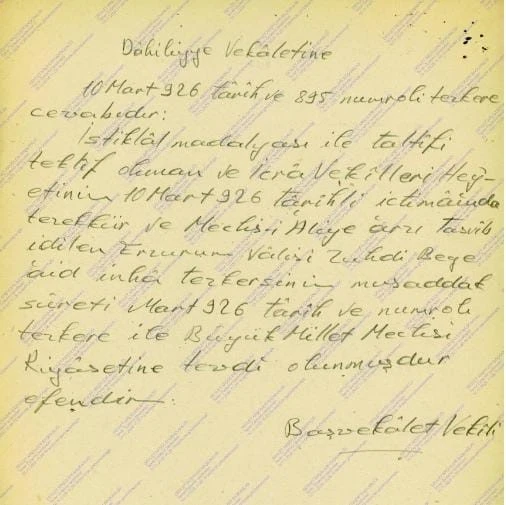 Dâhiliyye Vekâletine
10 Mart 926 târih ve 895 numroli tezkere
cevabıdır:
İstiklâl madalyası ile taltîfi
teklîf olunan ve İcrâ Vekilleri Hey-
etinin 10 Mart 926 târihli ictimâında
tezekkür ve Meclis-i Âliye arzı tasvib
idilen Erzurum Vâlisi Zühdi Beye
âid inhâ tezkersinin musaddak
sûreti Mart 926 târih ve numrolı
tezkere ile Büyük Millet Meclisi
Riyâsetine tevdi olunmuşdur
efendim.
Başvekâlet Vekili